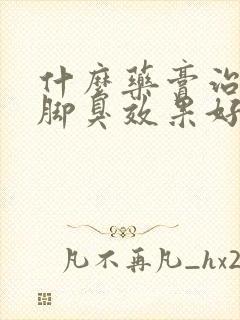 什麽藥膏治
脚臭效果好
凡不再凡_hx2